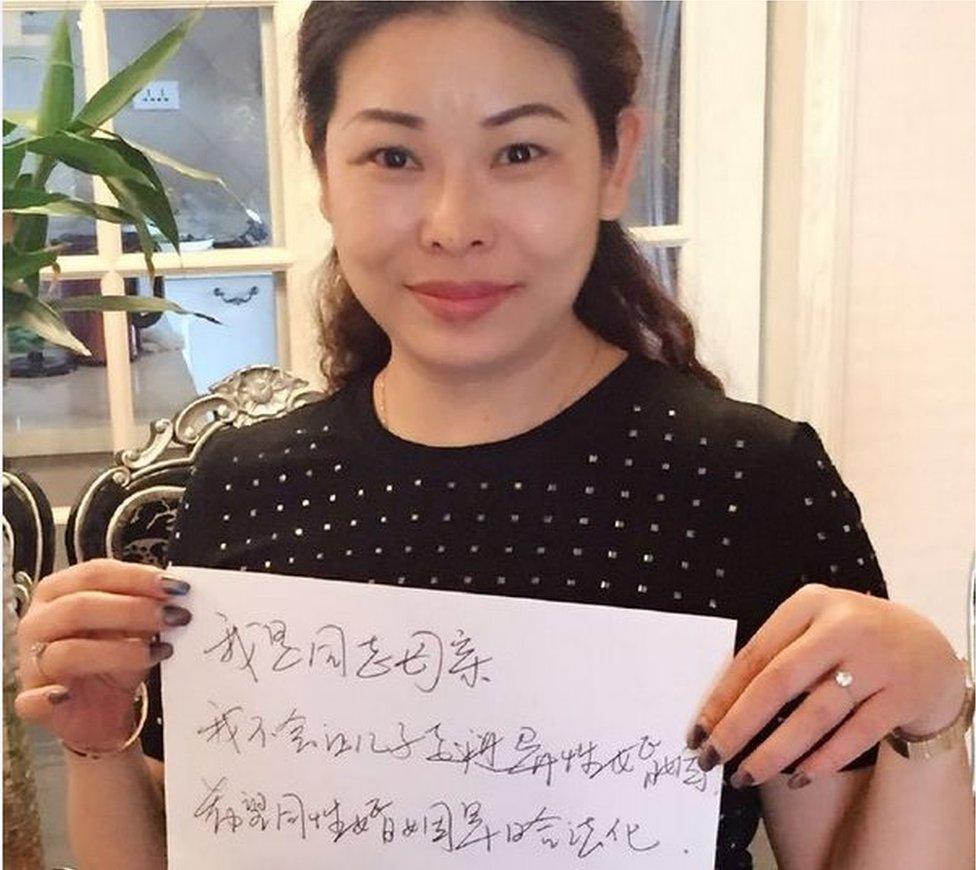 我是同志母亲
我不会让儿子走进异性婚姻.
希望同性婚姻早日合法化.